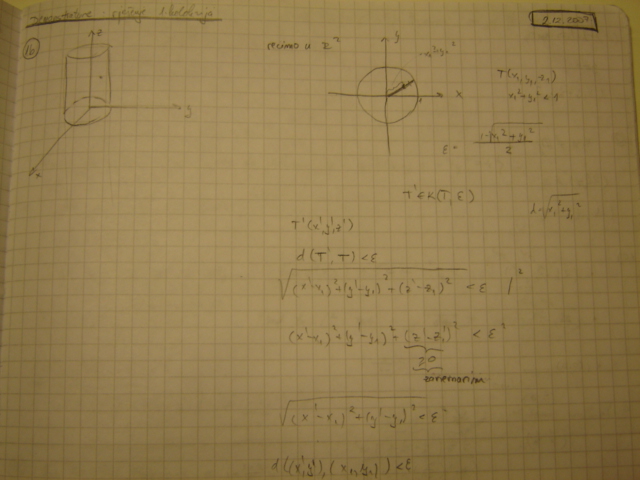 9.12.2005
z
y
x
recimo u R²
y
x
1
T(x₁, y₁, z₁)
x₁² + y₁² < 1
ε = (1-√(x₁² + y₁²))/2
T' ∈ K(T, ε)
1-√(x₁² + y₁²)
T'(x', y', z')
d(T', T) < ε
√((x'-x₁)² + (y'-y₁)² + (z'-z₁)²) < ε |²
(x'-x₁)² + (y'-y₁)² + (z'-z₁)² < ε²
≥0
zanemarim
√((x'-x₁)² + (y'-y₁)²) < ε
d((x', y'), (x₁, y₁)) < ε